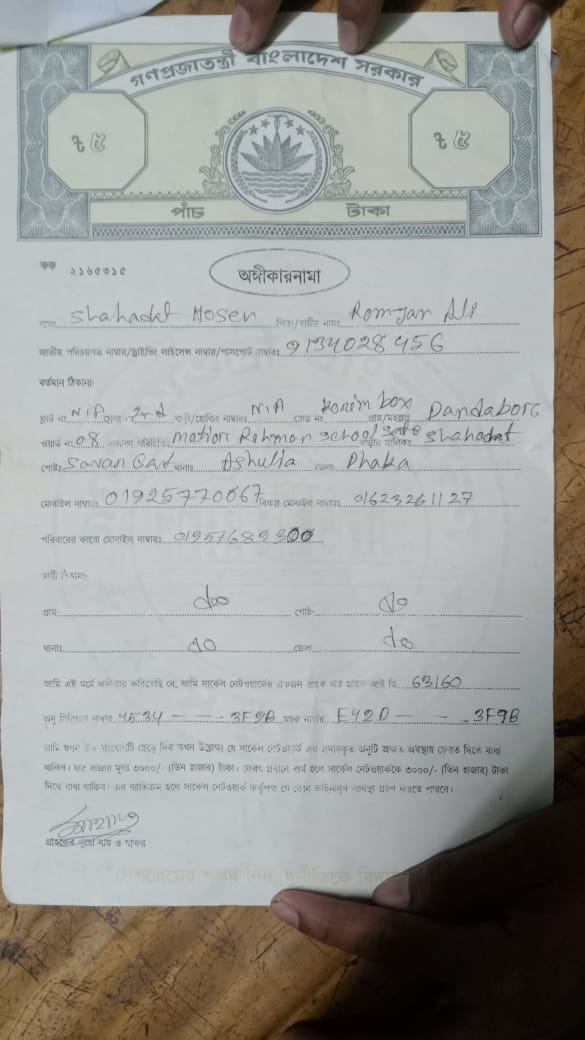 গণপ্রজাতন্ত্রী বাংলাদেশ সরকার
৳ ৫ ৳ ৫
পাঁচ টাকা
কক ২১৬৫৩১৫
অঙ্গীকারনামা
নামঃ Shahadat Hosen পিতা/স্বামীর নামঃ Romjan Ali
জাতীয় পরিচয়পত্র নাম্বার/ড্রাইভিং লাইসেন্স নাম্বার/পাসপোর্ট নাম্বারঃ 9134028456
বর্তমান ঠিকানা:
ফ্লাট নং N/A 2nd বাড়ী/হোল্ডিং নাম্বারঃ N/A রোড নং Korim box গ্রাম/মহল্লাঃ
ওয়ার্ড নং 08 পরিচিতিঃ Rohman School মালিকঃ Shahadat
পোষ্টঃ থানাঃ Ashulia জেলাঃ Dhaka
মোবাইল নাম্বারঃ 01925770067 বিকল্প মোবাইল নাম্বারঃ 01623261127
পরিবারের কারো মোবাইল নাম্বারঃ
স্থায়ী ঠিকানা:
গ্রাম: do পোষ্ট: do
থানাঃ do জেলা: do
আমি এই মর্মে অঙ্গীকার করিতেছি যে, আমি সার্কেল নেটওয়ার্কের একজন গ্রাহক যার গ্রাহক আই ডি. 63160
অনু সিরিয়াল নাম্বার 4534 --- 3F9B ম্যাক নাম্বার. E42D --- 3F9B
আমি যখন উক্ত সংযোগটি ছেড়ে দিব তখন উল্লেখ্য যে সার্কেল নেটওয়ার্ক এর প্রদানকৃত অনুটি অক্ষত অবস্থায় ফেরত দিতে বাধ্য
থাকিব। যার বাজার মূল্য ৩০০০/- (তিন হাজার) টাকা। ফেরৎ প্রদানে ব্যর্থ হলে সার্কেল নেটওয়ার্ককে ৩০০০/- (তিন হাজার) টাকা
দিতে বাধ্য থাকিব। এর ব্যতিক্রম হলে সার্কেল নেটওয়ার্ক কর্তৃপক্ষ যে কোন আইনানুগ ব্যবস্থা গ্রহণ করতে পারবে।
গ্রাহকের পুরো নাম ও স্বাক্ষর